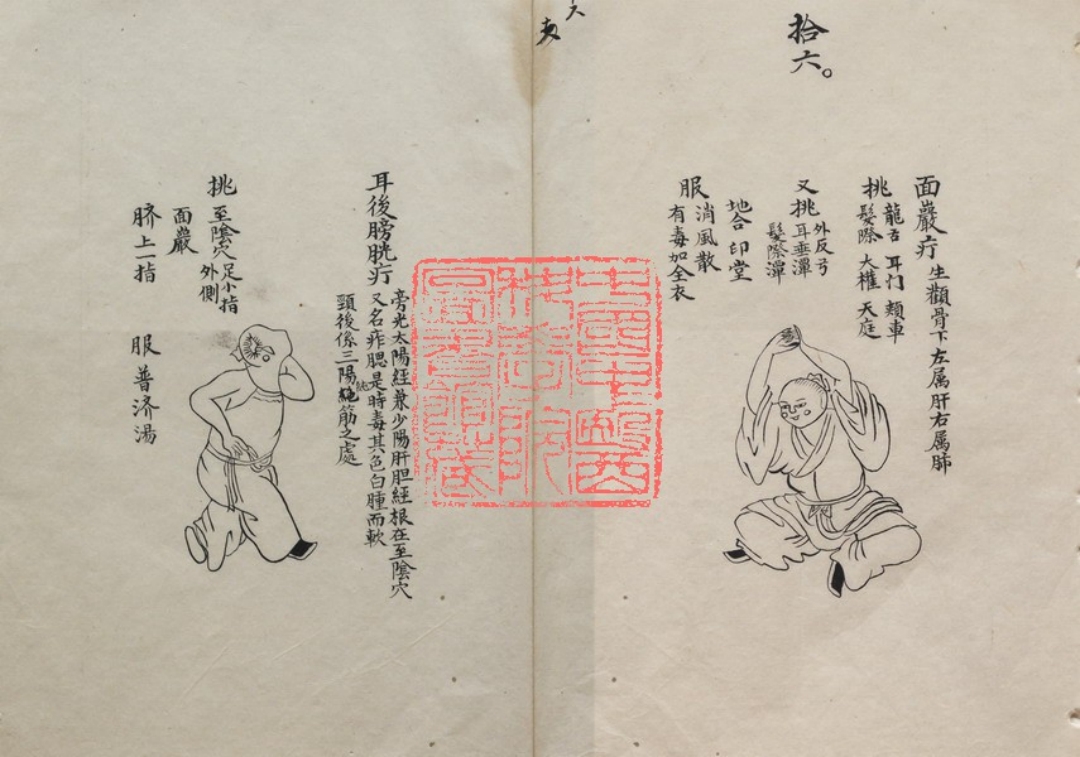 拾六。
面巖疔
生顴骨下左属肝右属肺
挑
龍舌 耳门 頬車
髮際 大權 天庭
又挑
外反弓
耳垂潭
髮際潭
地合 印堂
服
消風散
有毒加全衣
耳後膀胱疔
旁光太陽經兼少陽肝胆經根在至陰穴
又名痄腮是時毒其色白腫而軟
頸後係三陽絡筋之處
挑
至陰穴
足小指
外側
面巖
臍上一指
服普济湯